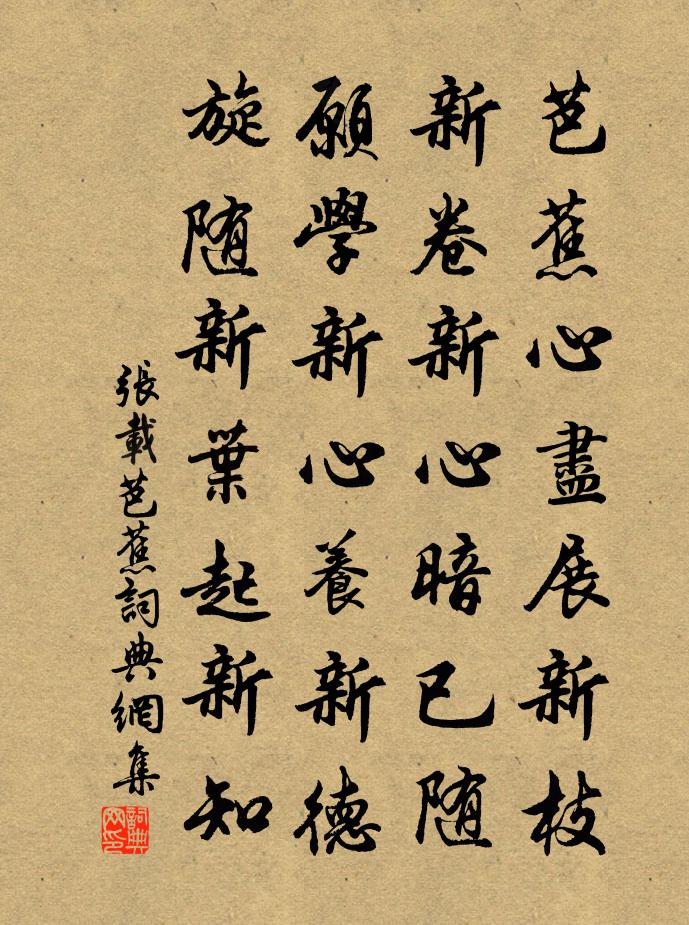 芭蕉心盡展新枝
新卷新心暗已随
願學新心養新德
旋随新葉起新知
張載芭蕉詞典網集
詞典網印